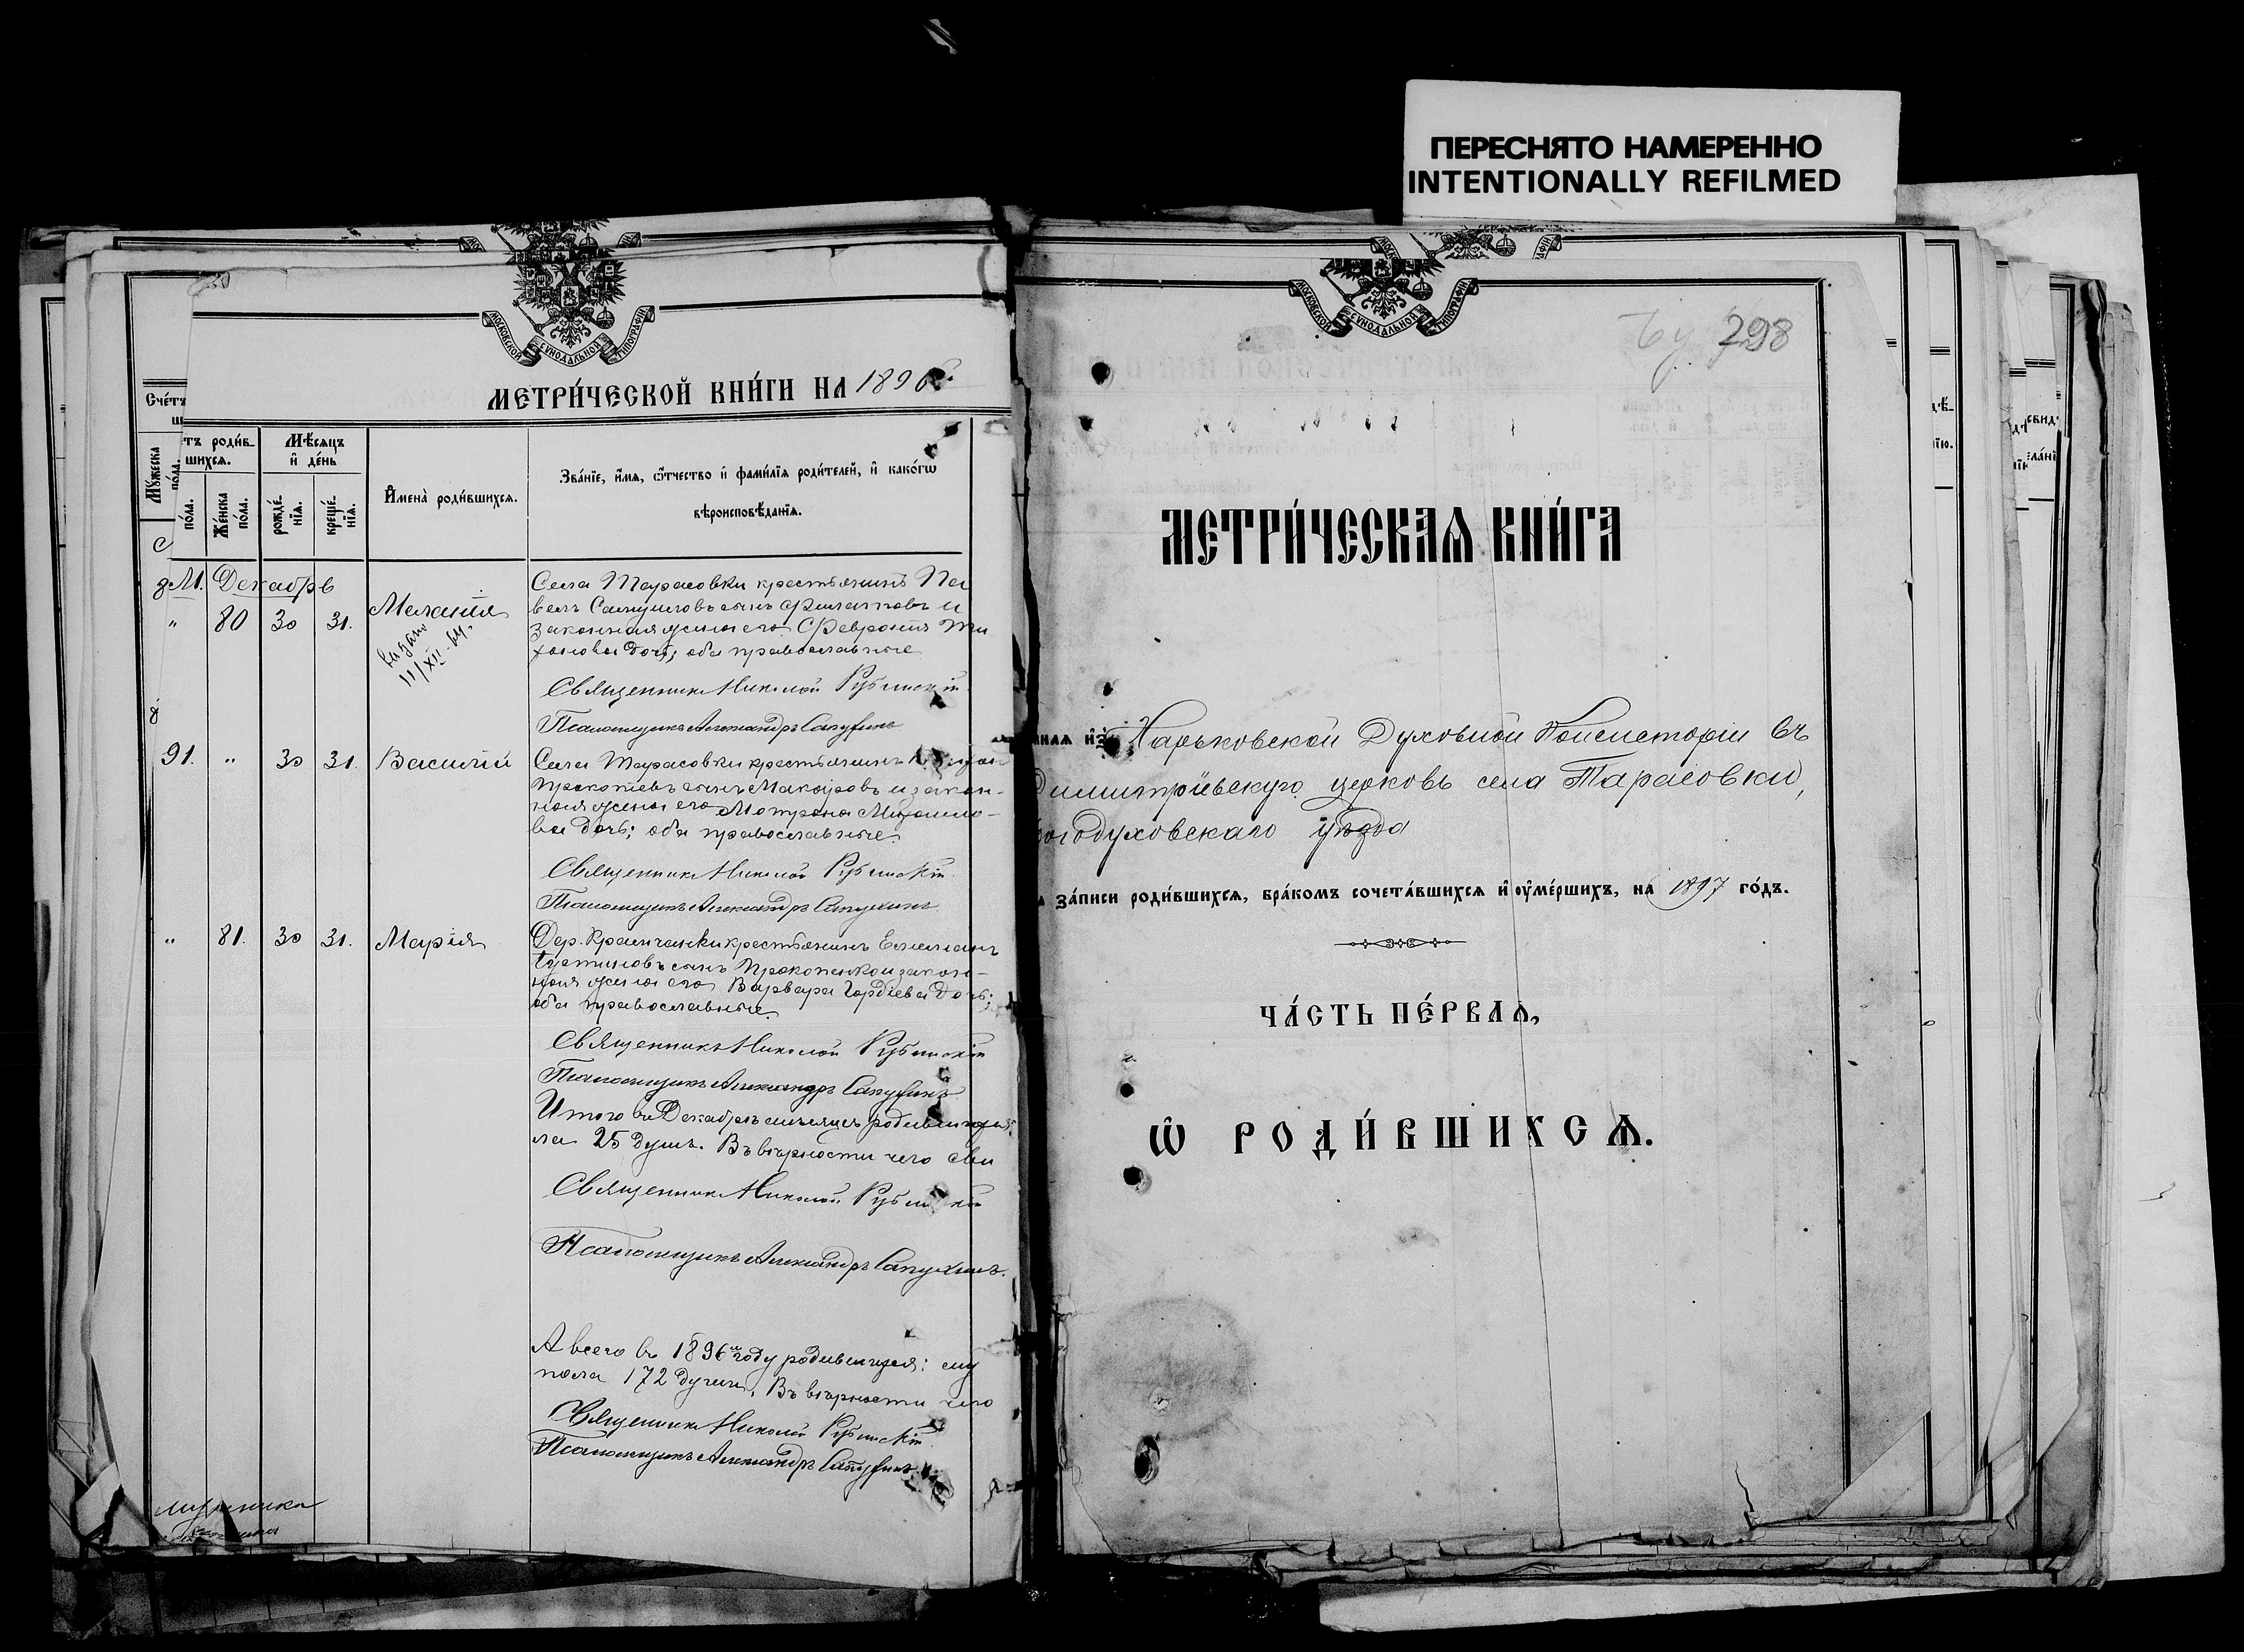 ПЕРЕСНЯТО НАМЕРЕННО
INTENTIONALLY REFILMED
МОСКОВСКОЙ СѴНОДАЛЬНОЙ ТИПОГРАФІИ
МЕТРИ́ЧЕСКОЙ КНИ́ГИ НА 1896
Сче́тъ
Мꙋ́жеска по́ла.
тъ роди́в-
шихсѧ.
Мѣ́сѧцъ
и҆ де́нь
по́ла.
Же́нска по́ла.
рожде́нїѧ.
креще́нїѧ.
И҆мена̀ роди́вшихсѧ.
Зва́нїе, и҆́мѧ, ѻ҆́тчество и҆ фами́лїѧ роди́телей, и҆ како́гѡ
вѣроисповѣ́данїѧ.
Декабрь
" 80 30 31. Меланія
выдано
11/XII
Села Тарасовки крестьянинъ Па
велъ Самуиловъ сынъ Филатовъ и
законная жена его Феврония Ти
хонова дочь; оба православные
Священникъ Николай Рубинскій
Псаломщикъ Александръ Сапухинъ
91. " 30 31. Василій
Села Тарасовки крестьянинъ
Прокопіевъ сынъ Макаровъ и закон-
ная жена его Мотрона Михаило-
ва дочь; оба православные.
Священникъ Николай Рубинскій
Псаломщикъ Александръ Сапухинъ
" 81. 30 31. Марія
Дер. крестьянинъ Емилианъ
сынъ Прокопенко и закон-
ная жена его Варвара Гордіева дочь;
оба православные.
Священникъ Николай Рубинскій
Псаломщикъ Александръ Сапухинъ
Итого въ Декабрѣ мѣсяцѣ родившихся:
ла 25 душъ. Въ вѣрности чего сви
Священникъ Николай Рубинскій
Псаломщикъ Александръ Сапухинъ.
А всего въ 1896 м году родившихся: му
пола 172 души. Въ вѣрности чего
Священникъ Николай Рубинскій
Псаломщикъ Александръ Сапухинъ
МОСКОВСКОЙ СѴНОДАЛЬНОЙ ТИПОГРАФІИ
298
МЕТРИ́ЧЕСКАѦ КНИ́ГА
ннаѧ и҆з Харьковской Духовной Консисторіи въ
Димитріевскую церковь села Тарасовки,
Богодуховскаго уѣзда
за́писи роди́вшихсѧ, бра́комъ сочета́вшихсѧ и҆ ѹ҆ме́ршихъ, на 1897 го́дъ.
ЧА́СТЬ ПЕ́РВАѦ,
Ѡ҆ РОДИ́ВШИХСѦ.